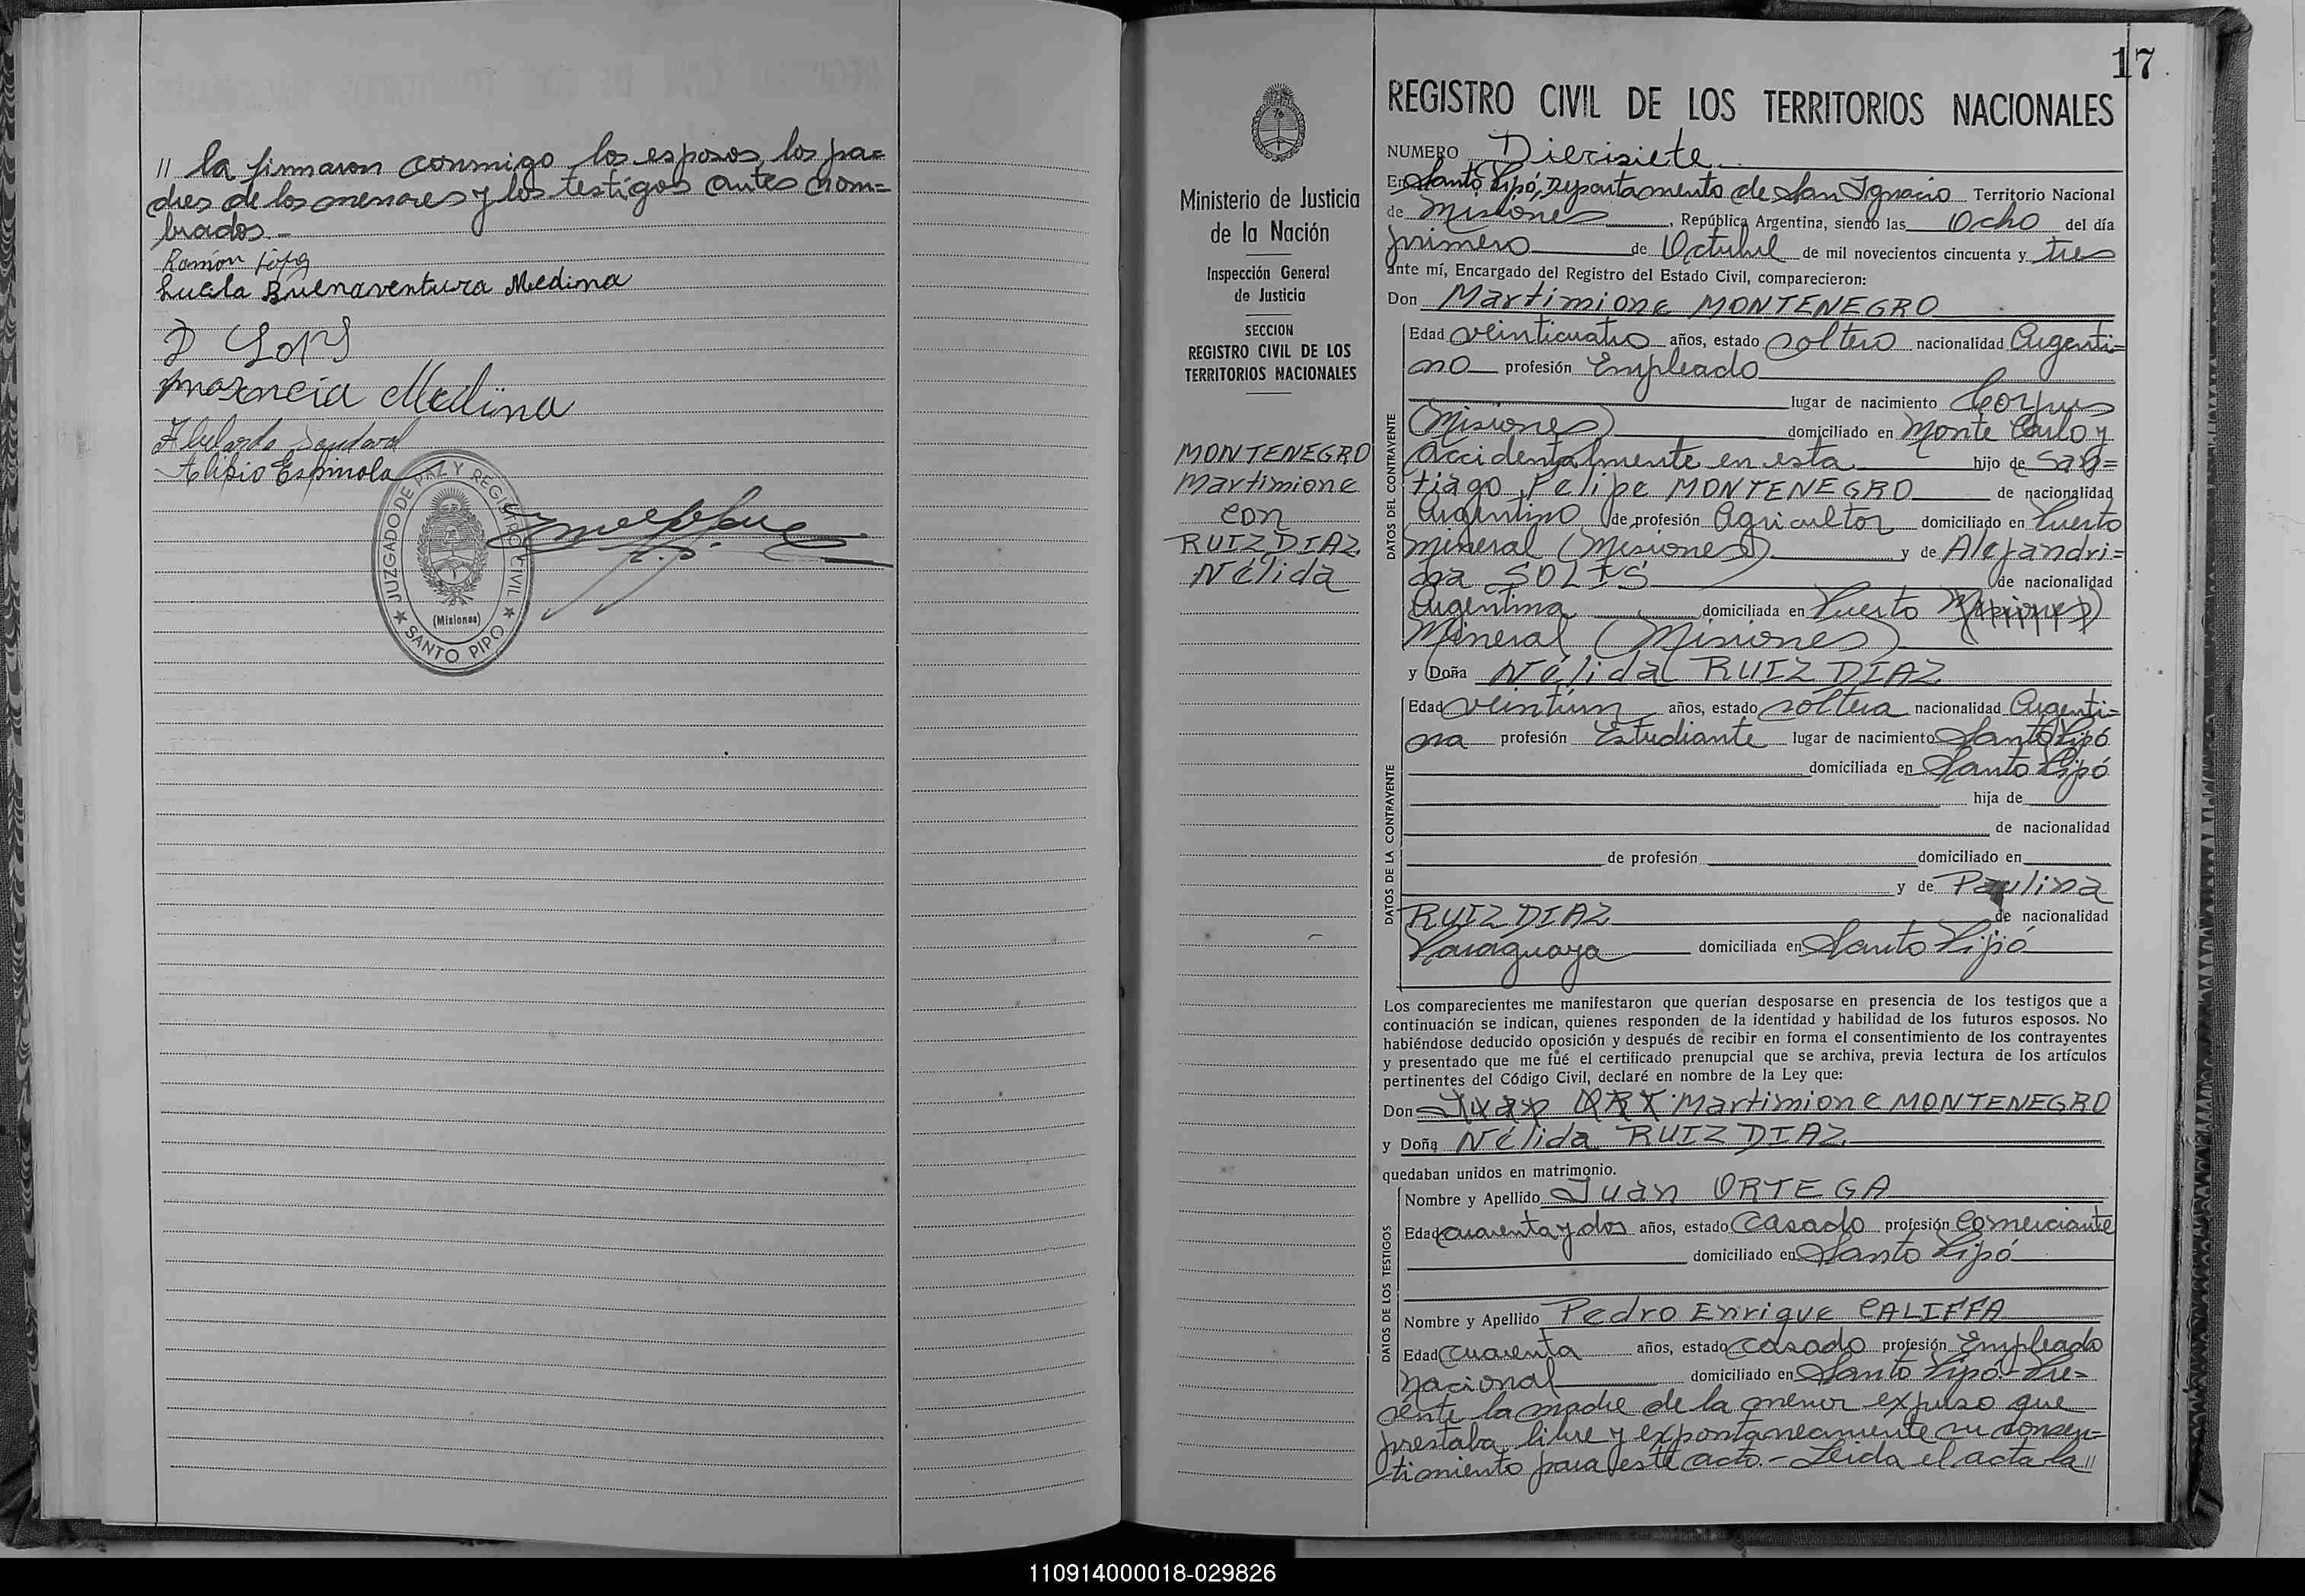 " la firmaron conmigo los esposos, los pa=
dres de los menores y los testigos antes nom=
brados.-
Ramón
Lucila Buenaventura Medina
Medina
Alibio Espinola
JUZGADO DE PAZ Y REGISTRO CIVIL
(Misiones)
SANTO PIPO
17
Ministerio de Justicia
de la Nación
Inspección General
de Justicia
SECCION
REGISTRO CIVIL DE LOS
TERRITORIOS NACIONALES
MONTENEGRO
Martimione
con
RUIZ DIAZ
Nélida
REGISTRO CIVIL DE LOS TERRITORIOS NACIONALES
NUMERO Diecisiete
En Santo Pipó, Departamento de San Ignacio Territorio Nacional
de Misiones, República Argentina, siendo las Ocho del día
primero de Octubre de mil novecientos cincuenta y tres
ante mí, Encargado del Registro del Estado Civil, comparecieron:
Don Martimione MONTENEGRO
DATOS DEL CONTRAYENTE
Edad veinticuatro años, estado soltero nacionalidad Argenti=
no profesión Empleado
lugar de nacimiento Corpus
(Misiones) domiciliado en Monte Carlo y
Accidentalmente en esta hijo de San=
tiago Felipe MONTENEGRO de nacionalidad
Argentino de profesión Agricultor domiciliado en Puerto
Mineral (Misiones) y de Alejandri=
na SOLIS de nacionalidad
Argentina domiciliada en Puerto
Mineral (Misiones)
y Doña Nélida RUIZ DIAZ
DATOS DE LA CONTRAYENTE
Edad veintiún años, estado soltera nacionalidad Argenti=
na profesión Estudiante lugar de nacimiento Santo Pipó
domiciliada en Santo Pipó
hija de
de nacionalidad
de profesión domiciliado en
y de Paulina
RUIZ DIAZ de nacionalidad
Paraguaya domiciliada en Santo Pipó
Los comparecientes me manifestaron que querían desposarse en presencia de los testigos que a
continuación se indican, quienes responden de la identidad y habilidad de los futuros esposos. No
habiéndose deducido oposición y después de recibir en forma el consentimiento de los contrayentes
y presentado que me fué el certificado prenupcial que se archiva, previa lectura de los artículos
pertinentes del Código Civil, declaré en nombre de la Ley que:
Don Martimione MONTENEGRO
y Doña Nélida RUIZ DIAZ
quedaban unidos en matrimonio.
DATOS DE LOS TESTIGOS
Nombre y Apellido Juan ORTEGA
Edad cuarenta y dos años, estado Casado profesión Comerciante
domiciliado en Santo Pipó
Nombre y Apellido Pedro Enrique CALIFFA
Edad cuarenta años, estado casado profesión Empleado
Nacional domiciliado en Santo Pipó.- Pre=
sente la madre de la menor expuso que
prestaba libre y expontaneamente su consen=
timiento para este acto.- Leida el acta la "
110914000018-029826